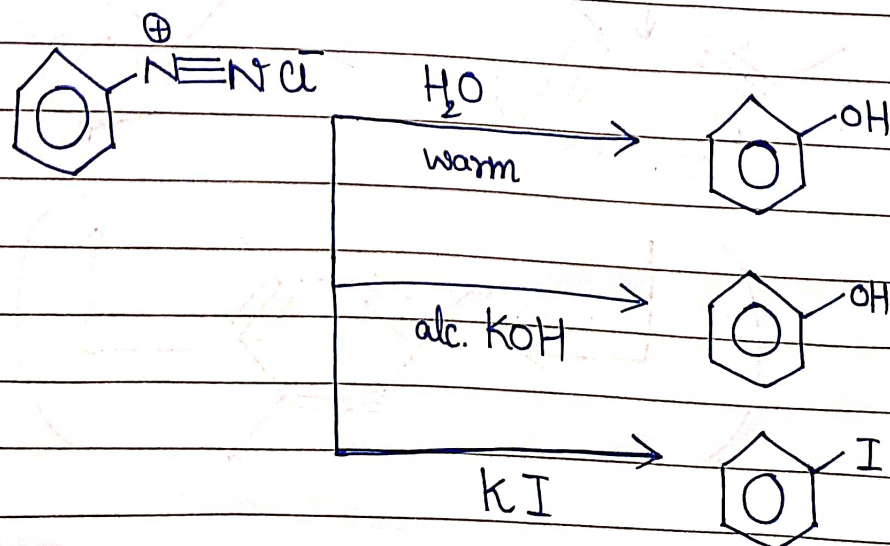 ⊕
N≡N Cl⁻
H₂O
warm
OH
alc. KOH
OH
KI
I